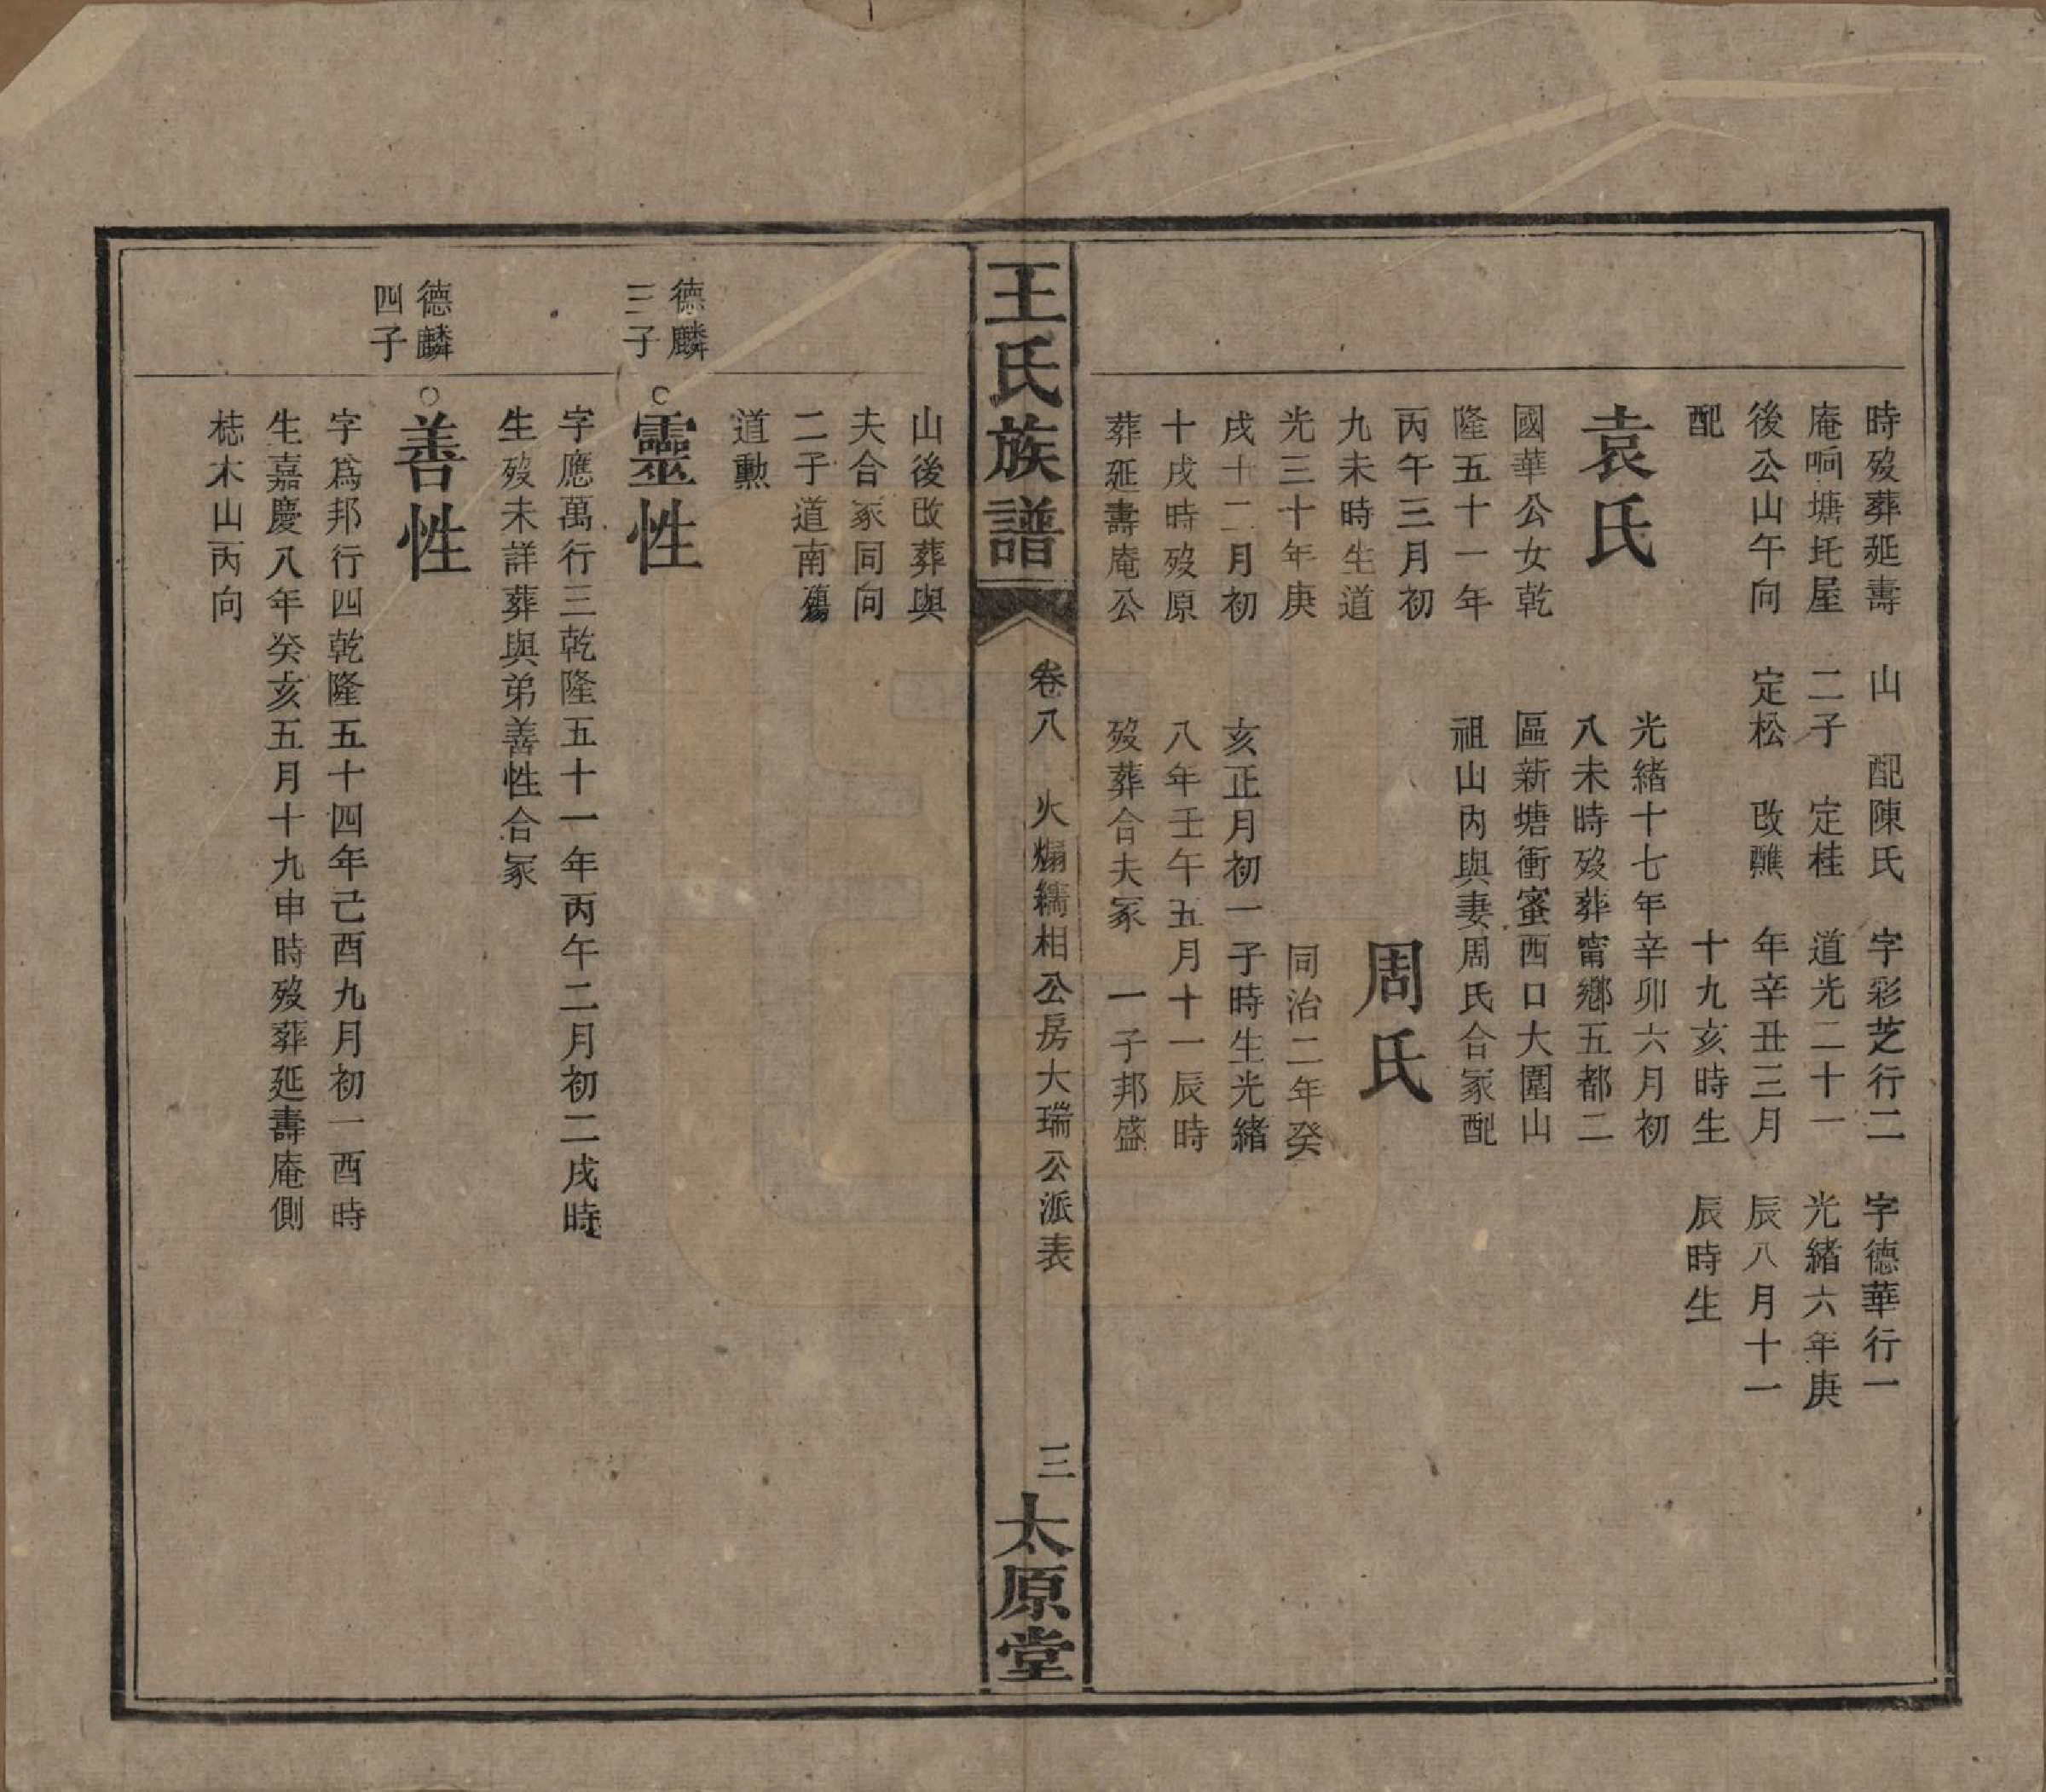 時歿葬延壽
庵响塘坉屋
後公山午向
配
袁氏
國華公女乾
隆五十一年
丙午三月初
九未時生道
光三十年庚
戌十二月初
十戌時歿原
葬延壽庵公
山 配陳氏
二子 定桂
定松 改醮
光緒十七年辛卯六月初
八未時歿葬甯鄉五都二
區新塘衝蜜西口大圍山
祖山內與妻周氏合冢配
周氏
同治二年癸
亥正月初一子時生光緒
八年壬午五月十一辰時
歿葬合夫冢 一子邦盛
字彩芝行二
道光二十一
年辛丑三月
十九亥時生
字德華行一
光緒六年庚
辰八月十一
辰時生
王氏族譜
卷八 火煸繻相公房大瑞公派表
三
太原堂
山後改葬與
夫合冢同向
二子道南殤
道勲
德麟
三子
○靈性
字應萬行三乾隆五十一年丙午二月初二戌時
生歿未詳葬與弟善性合冢
德麟
四子
○善性
字爲邦行四乾隆五十四年己酉九月初一酉時
生嘉慶八年癸亥五月十九申時歿葬延壽庵側
梽木山丙向